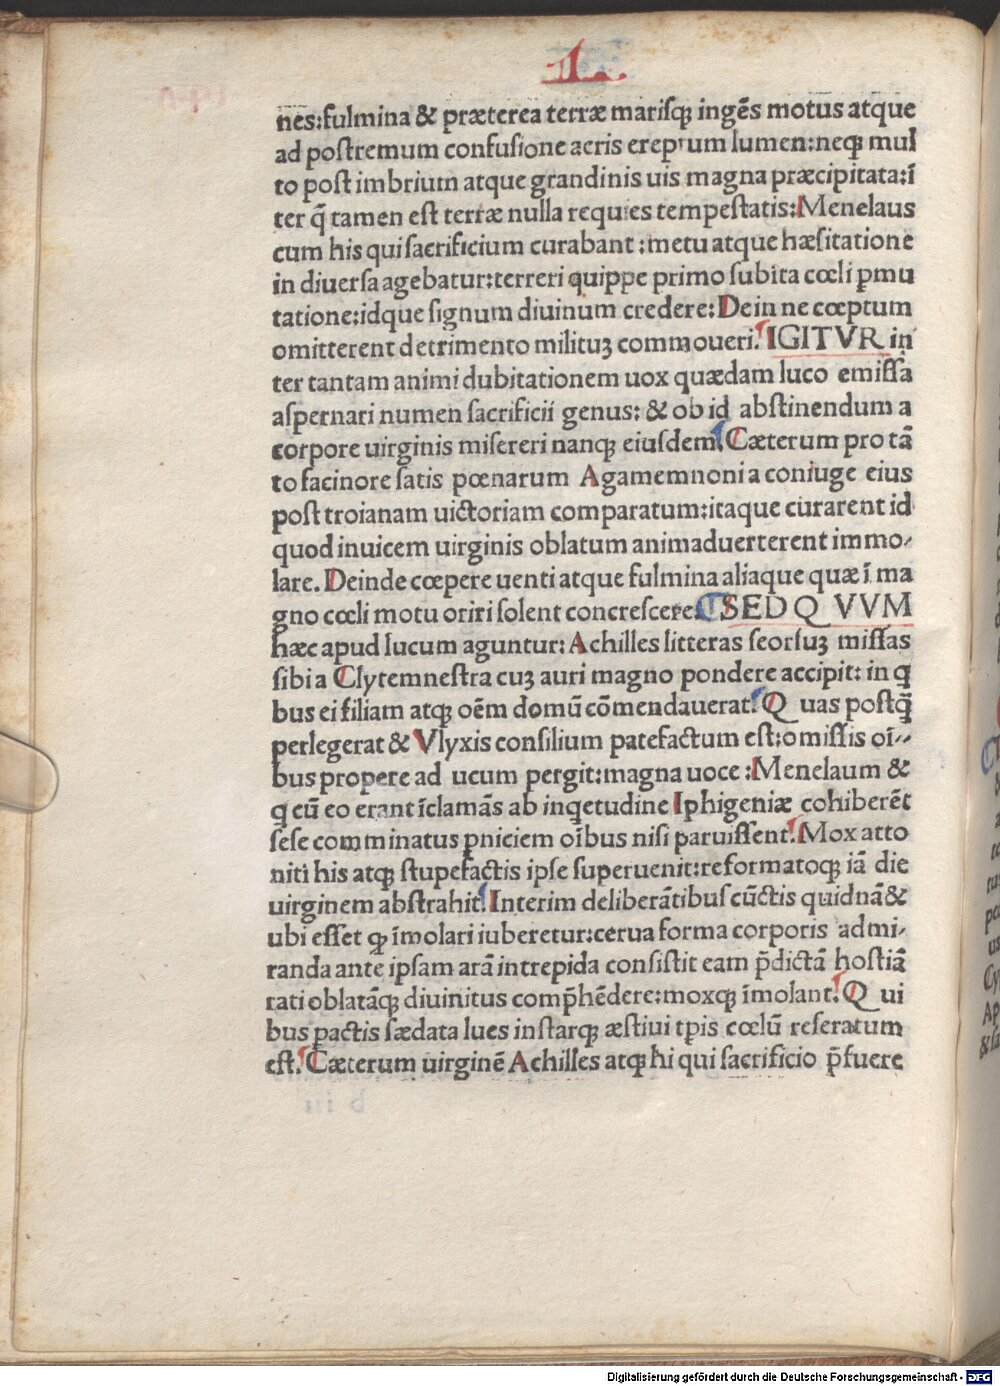 .1.
nes:fulmina & præterea terræ mariſqꝫ ingēs motus atque
ad poſtremum confuſione aeris ereptum lumen:neqꝫ mul
to poſt imbrium atque grandinis uis magna præcipitata:ī
ter q̄ tamen eſt terræ nulla requies tempeſtatis:Menelaus
cum his qui ſacrificium curabant :metu atque hæſitatione
in diuerſa agebatur:terreri quippe primo ſubita cœli ꝑmu
tatione:idque ſignum diuinum credere:Dein ne cœptum
omitterent detrimento milituꝫ commoueri.IGITVR in
ter tantam animi dubitationem uox quædam luco emiſſa
aſpernari numen ſacrificii genus: & ob id abſtinendum a
corpore uirginis miſereri nanqꝫ eiuſdem.Cæterum pro tā
to facinore ſatis pœnarum Agamemnoni a coniuge eius
poſt troianam uictoriam comparatum:itaque curarent id
quod inuicem uirginis oblatum animaduerterent immo⸗
lare.Deinde cœpere uenti atque fulmina aliaque quæ ī ma
gno cœli motu oriri ſolent concreſcere.SED Q VVM
hæc apud lucum aguntur:Achilles litteras ſeorſuꝫ miſſas
ſibi a Clytemneſtra cuꝫ auri magno pondere accipit: in q
bus ei filiam atqꝫ oēm domū cōmendauerat.Q uas poſtq̄
perlegerat & Vlyxis conſilium patefactum eſt:omiſſis oī⸗
bus propere ad ucum pergit:magna uoce :Menelaum &
q cū eo erant īclamās ab inqetudine Iphigeniæ cohiberēt
ſeſe comminatus ꝑniciem oībus niſi paruiſſent.Mox atto
niti his atqꝫ ſtupefactis ipſe ſuperuenit:reformatoqꝫ iā die
uirginem abſtrahit.Interim deliberātibuſ cūctis quidnā&
ubi eſſet qꝫ īmolari iuberetur:cerua forma corporis admi⸗
randa ante ipſam arā intrepida conſiſtit eam p̄dictā hoſtiā
rati oblatāqꝫ diuinitus comp̄hēdere:moxqꝫ īmolant.Q ui
bus ꝑactis ſædata lues inſtarqꝫ æſtiui tꝑis cœlū reſeratum
eſt.Cæterum uirginē Achilles atqꝫ hi qui ſacrificio p̄fuere
Digitalisierung gefördert durch die Deutsche Forschungsgemeinschaft - DFG